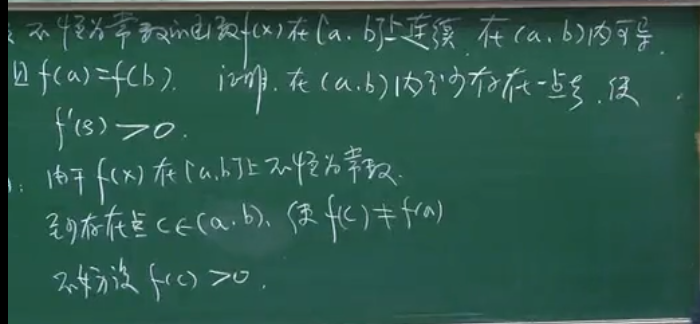 不恒为常数的函数f(x)在[a,b]上连续,在(a,b)内可导.
且f(a)=f(b). 证明,在(a,b)内至少存在一点ξ,使
f'(ξ)>0.
: 由于f(x)在[a,b]上不恒为常数.
至少存在点c∈(a,b),使f(c)≠f(a)
不妨设f(c)>0.